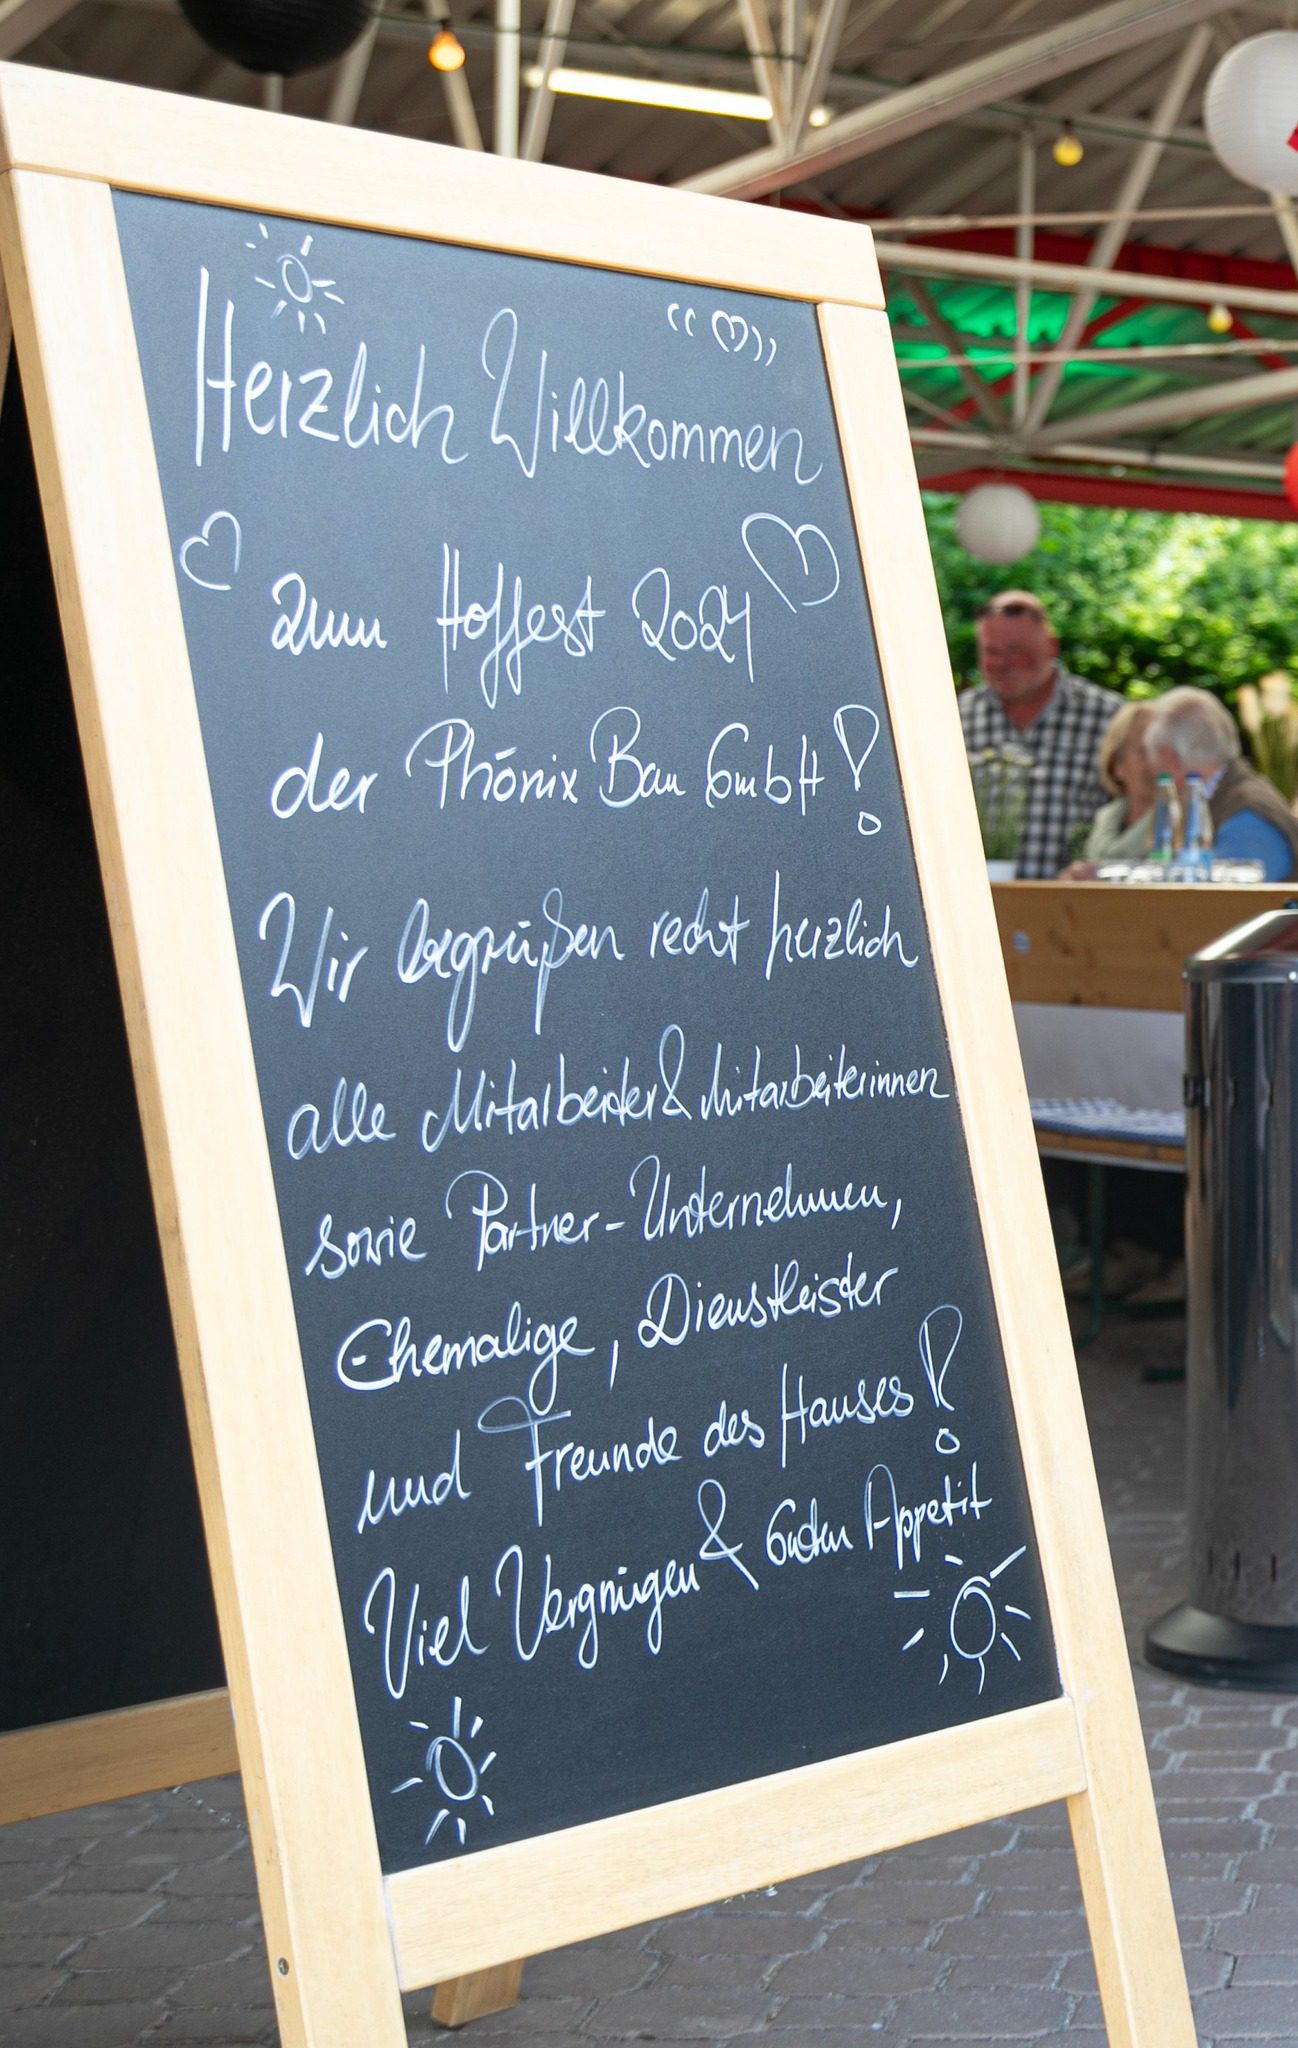 Herzlich Willkommen
zum Hoffest 2024
der Phönix Bau GmbH!
Wir begrüßen recht herzlich
alle Mitarbeiter & Mitarbeiterinnen
sowie Partner-Unternehmen,
Ehemalige, Dienstleister
und Freunde des Hauses!
Viel Vergnügen & Guten Appetit